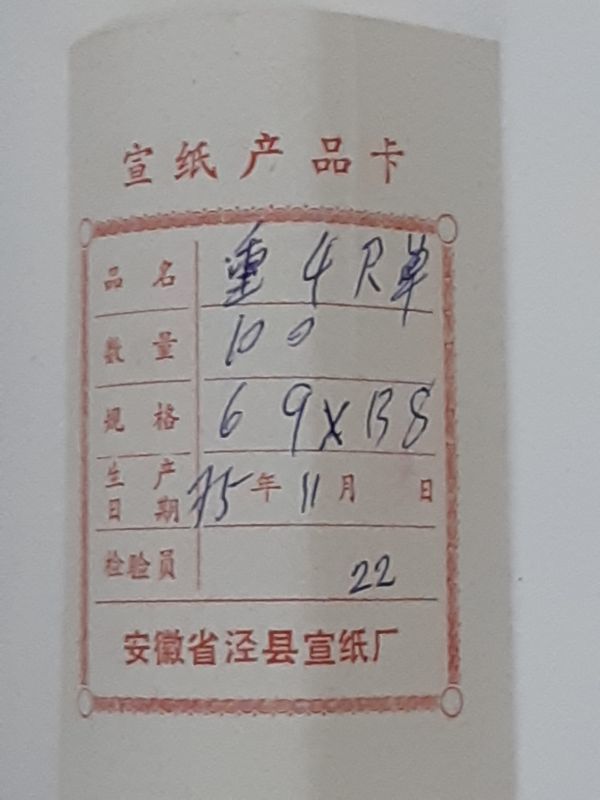 宣纸产品卡
品名 重4尺单
数量 100
规格 69×138
生产日期 75年11月 日
检验员 22
安徽省泾县宣纸厂